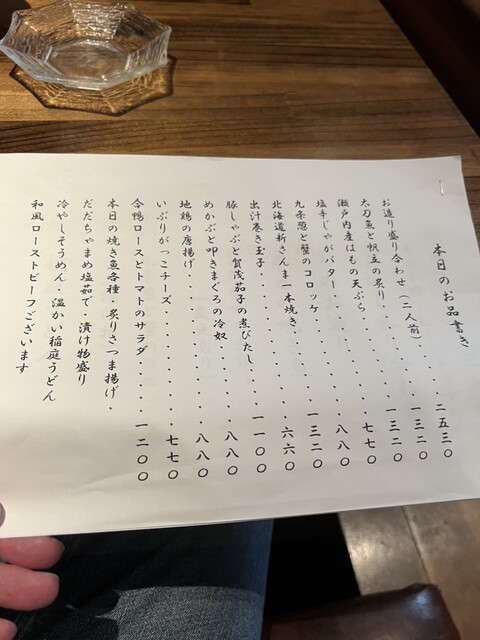 本日のお品書き
お造り盛り合わせ(二人前)・・・・二五三〇
太刀魚と帆立の炙り・・・・・・・一三二〇
瀬戸内産はもの天ぷら・・・・・・一三二〇
塩辛じゃがバター・・・・・・・・七七〇
九条葱と蟹のコロッケ・・・・・・八八〇
北海道新さんま一本焼き・・・・・一三二〇
出汁巻き玉子・・・・・・・・・・六六〇
豚しゃぶと賀茂茄子の煮びたし・・一一〇〇
めかぶと叩きまぐろの冷奴・・・・八八〇
地鶏の唐揚げ・・・・・・・・・・八八〇
いぶりがっこチーズ・・・・・・・七七〇
合鴨ロースとトマトのサラダ・・・・一二〇〇
本日の焼き魚各種・炙りさつま揚げ・
だだちゃまめ塩茹で・漬け物盛り
冷やしそうめん・温かい稲庭うどん
和風ローストビーフございます